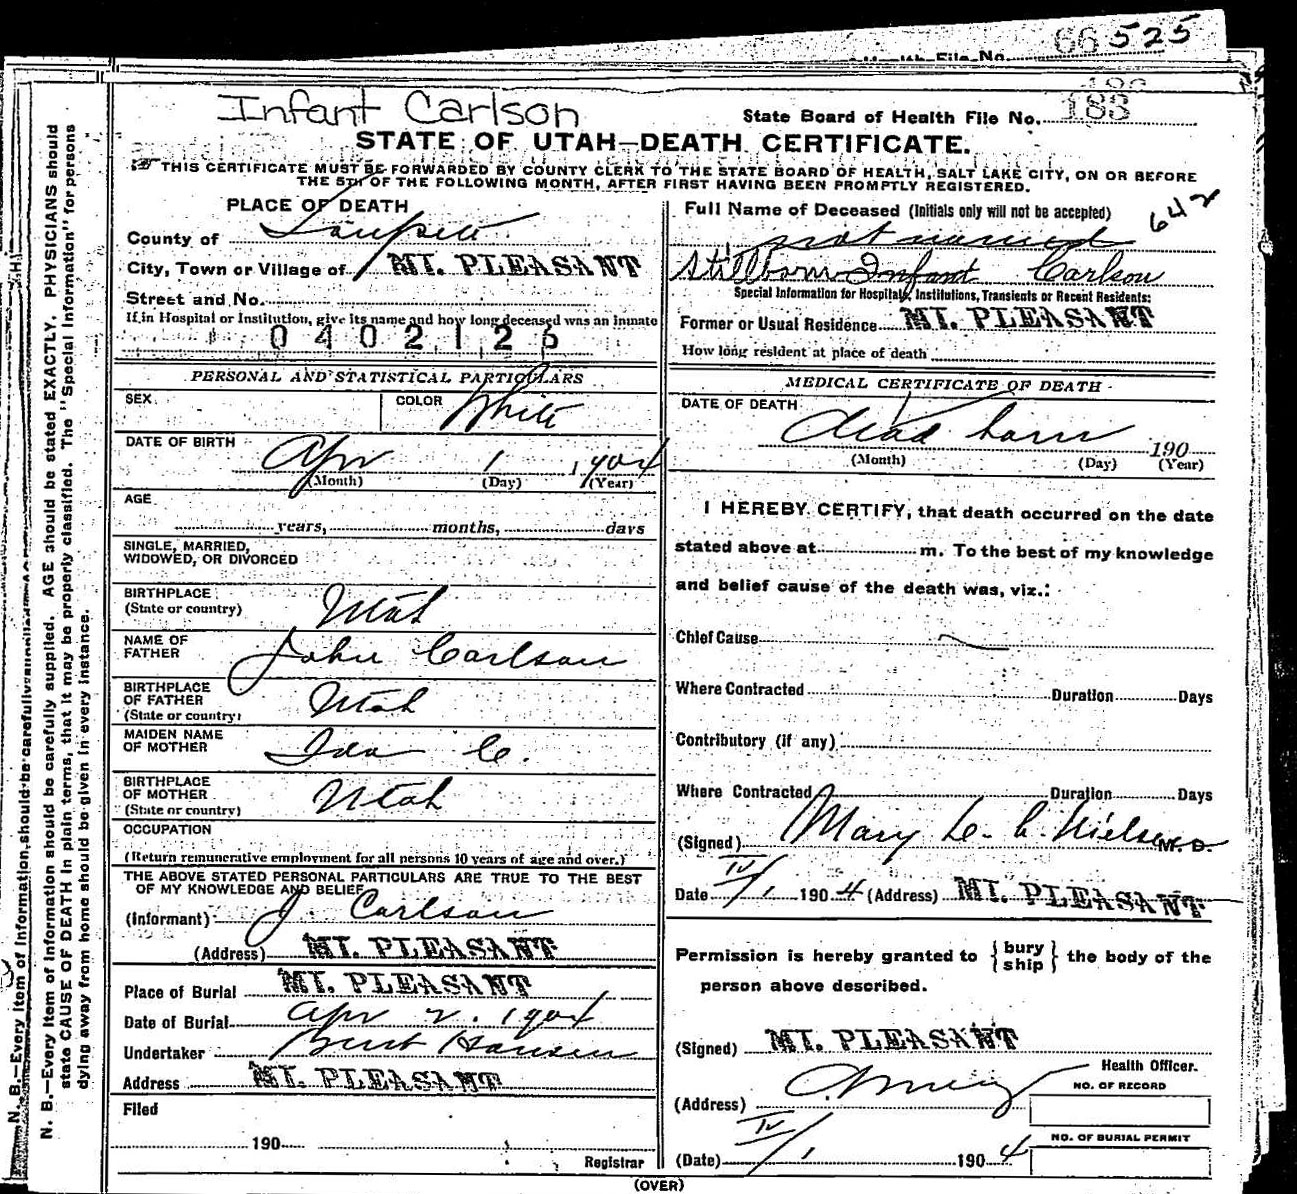 66525
Infant Carlson
State Board of Health File No. 183
STATE OF UTAH—DEATH CERTIFICATE.
THIS CERTIFICATE MUST BE FORWARDED BY COUNTY CLERK TO THE STATE BOARD OF HEALTH, SALT LAKE CITY, ON OR BEFORE
THE 5TH OF THE FOLLOWING MONTH, AFTER FIRST HAVING BEEN PROMPTLY REGISTERED.
PLACE OF DEATH
County of Sanpete
City, Town or Village of MT. PLEASANT
Street and No.
If in Hospital or Institution, give its name and how long deceased was an inmate
0402126
PERSONAL AND STATISTICAL PARTICULARS
SEX
COLOR White
DATE OF BIRTH
Apr 1 1904
(Month) (Day) (Year)
AGE
years, months, days
SINGLE, MARRIED,
WIDOWED, OR DIVORCED
BIRTHPLACE
(State or country) Utah
NAME OF
FATHER John Carlson
BIRTHPLACE
OF FATHER
(State or country) Utah
MAIDEN NAME
OF MOTHER Ida C.
BIRTHPLACE
OF MOTHER
(State or country) Utah
OCCUPATION
(Return remunerative employment for all persons 10 years of age and over.)
THE ABOVE STATED PERSONAL PARTICULARS ARE TRUE TO THE BEST
OF MY KNOWLEDGE AND BELIEF
(Informant) J Carlson
(Address) MT. PLEASANT
Place of Burial MT. PLEASANT
Date of Burial Apr 2. 1904
Undertaker Bent Hansen
Address MT. PLEASANT
Filed
190
Registrar
Full Name of Deceased (Initials only will not be accepted)
642
not named
Stillborn Infant Carlson
Special Information for Hospitals, Institutions, Transients or Recent Residents:
Former or Usual Residence MT. PLEASANT
How long resident at place of death
MEDICAL CERTIFICATE OF DEATH
DATE OF DEATH
dead born 190
(Month) (Day) (Year)
I HEREBY CERTIFY, that death occurred on the date
stated above at m. To the best of my knowledge
and belief cause of the death was, viz.:
Chief Cause
Where Contracted Duration Days
Contributory (if any)
Where Contracted Duration Days
(Signed) Mary L. C. Nielsen M. D.
Date IV/1 1904 (Address) MT. PLEASANT
Permission is hereby granted to { bury ship } the body of the
person above described.
(Signed) MT. PLEASANT
Health Officer.
(Address)
NO. OF RECORD
NO. OF BURIAL PERMIT
(Date) IV/1 1904
(OVER)
N. B.—Every item of information should be carefully supplied. AGE should be stated EXACTLY. PHYSICIANS should
state CAUSE OF DEATH in plain terms, that it may be properly classified. The "Special Information" for persons
dying away from home should be given in every instance.